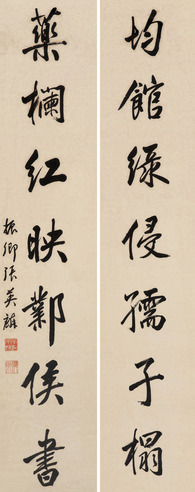 均館綠侵孺子榻
藥欄紅映鄴侯書
振卿張英麟